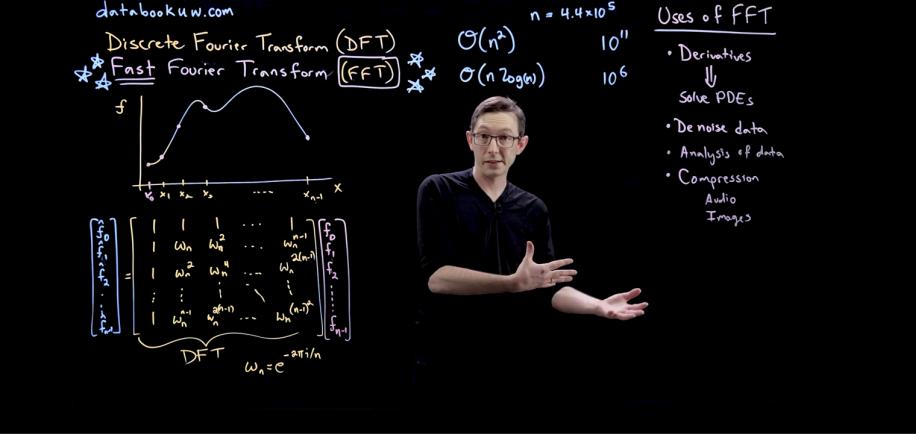 databookuw.com
Discrete Fourier Transform (DFT)
Fast Fourier Transform (FFT)
n = 4.4×10⁵
O(n²) 10¹¹
O(n log(n)) 10⁶
f
x₀ x₁ x₂ x₃ .... xₙ₋₁ x
f̂₀ 1 1 1 ... 1 f₀
f̂₁ 1 ωₙ ωₙ² ... ωₙⁿ⁻¹ f₁
f̂₂ = 1 ωₙ² ωₙ⁴ ... ωₙ²⁽ⁿ⁻¹⁾ f₂
⋮ ⋮ ⋮ ⋮ ⋱ ⋮ ⋮
f̂ₙ₋₁ 1 ωₙⁿ⁻¹ ωₙ²⁽ⁿ⁻¹⁾ ... ωₙ⁽ⁿ⁻¹⁾² fₙ₋₁
DFT
ωₙ = e^(-2πi/n)
Uses of FFT
• Derivatives
⇓
Solve PDEs
• Denoise data
• Analysis of data
• Compression
Audio
Images